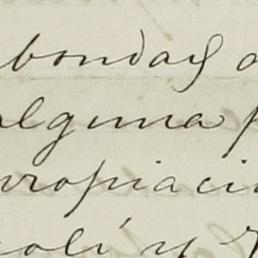 bondad
alguna
ropiaci
olí y